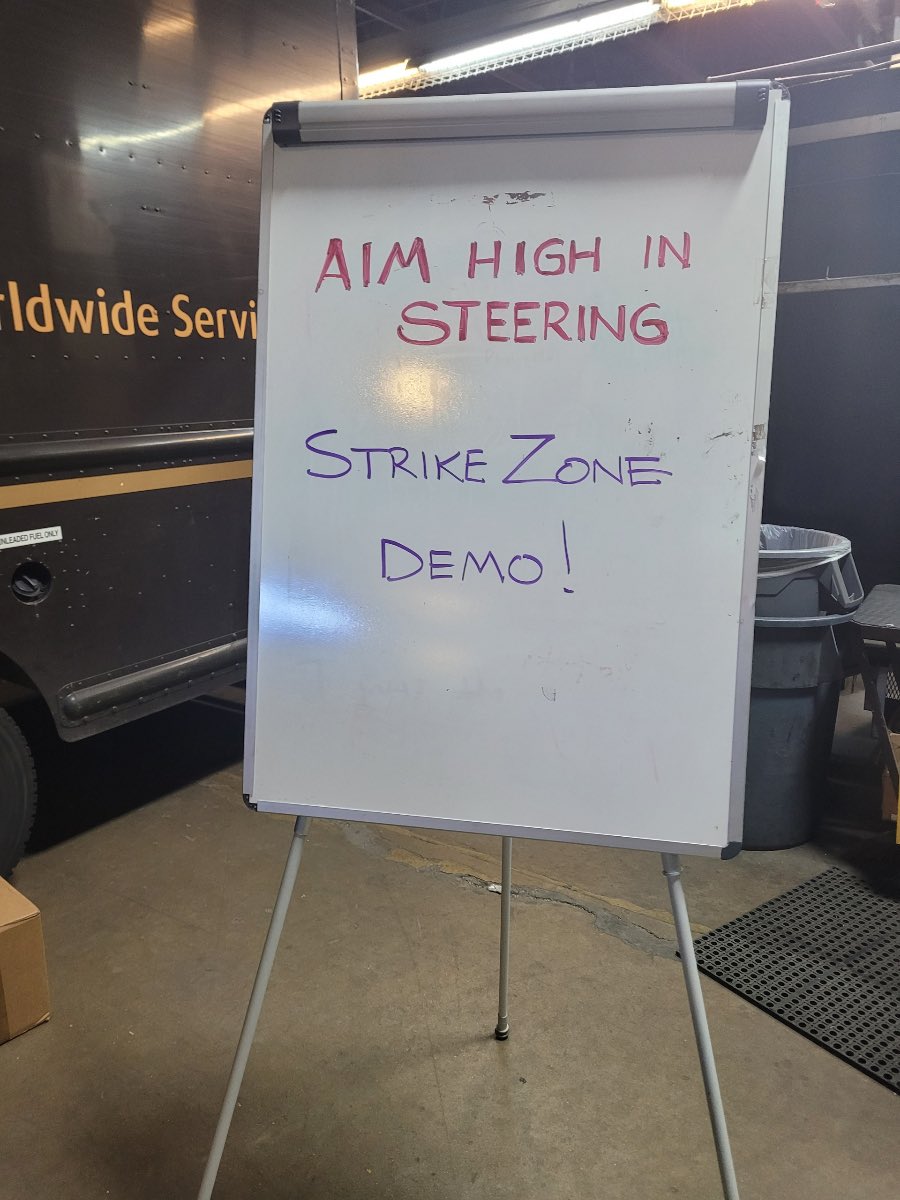 rldwide Servi
AIM HIGH IN
STEERING
STRIKE ZONE
DEMO!
NLEADED FUEL ONLY